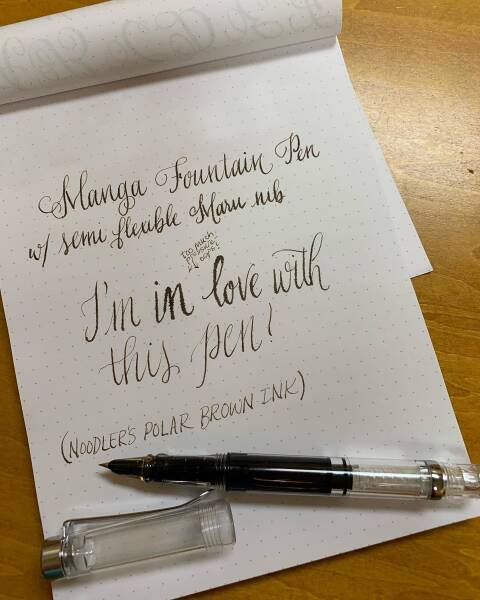 Manga Fountain Pen
w/ semi flexible Maru nib
too much
pressure
oops!
I'm in love with
this pen!
(NOODLER'S POLAR BROWN INK)